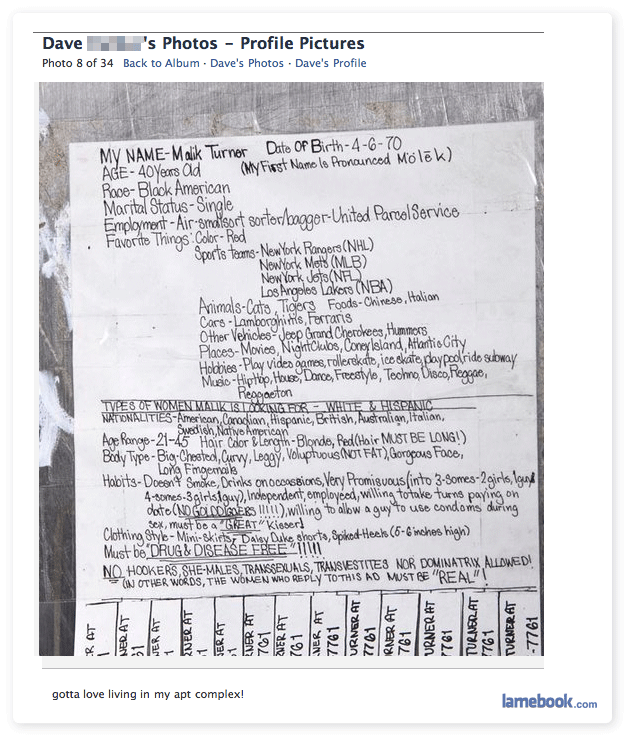 Dave 's Photos – Profile Pictures
Photo 8 of 34 Back to Album · Dave's Photos · Dave's Profile
MY NAME-Malik Turner Date Of Birth-4-6-70
AGE-40 Years Old (My First Name Is Pronounced Mölēk)
Race-Black American
Marital Status-Single
Employment-Air-smallsort sorter/bagger-United Parcel Service
Favorite Things: Color-Red
Sports Teams-New York Rangers (NHL)
New York Mets (MLB)
New York Jets (NFL)
Los Angeles Lakers (NBA)
Animals-Cats, Tigers Foods-Chinese, Italian
Cars-Lamborghinis, Ferraris
Other Vehicles-Jeep Grand Cherokees, Hummers
Places-Movies, NightClubs, Coney Island, Atlantic City
Hobbies-Play video games, rollerskate, ice skate, play pool, ride subway
Music-HipHop, House, Dance, Freestyle, Techno, Disco, Reggae,
Reggaeton
TYPES OF WOMEN MALIK IS LOOKING FOR - WHITE & HISPANIC
NATIONALITIES-American, Canadian, Hispanic, British, Australian, Italian,
Swedish, Native American
Age Range-21-45 Hair Color & Length-Blonde, Red (Hair MUST BE LONG!)
Body Type-Big-Chested, Curvy, Leggy, Voluptuous (NOT FAT), Gorgeous Face,
Long Fingernails
Habits-Doesn't Smoke, Drinks on occassions, Very Promiguous (into 3-somes-2girls, 1guy
4-somes-3girls 1guy), Independent, employeed, willing to take turns paying on
date (NO GOLDDIGGERS !!!!!), willing to allow a guy to use condoms during
sex, must be a "GREAT" Kisser!
Clothing Style-Mini-skirts, Daisy Duke shorts, Spiked-Heels (5-6 inches high)
Must be "DRUG & DISEASE FREE"!!!!!
NO HOOKERS, SHE-MALES, TRANSSEXUALS, TRANSVESTITES NOR DOMINATRIX ALLOWED!
(IN OTHER WORDS, THE WOMEN WHO REPLY TO THIS AD MUST BE "REAL"!
TURNER AT
7761
TURNER AT
7761
TURNER AT
7761
TURNER AT
-7761
gotta love living in my apt complex!
lamebook.com